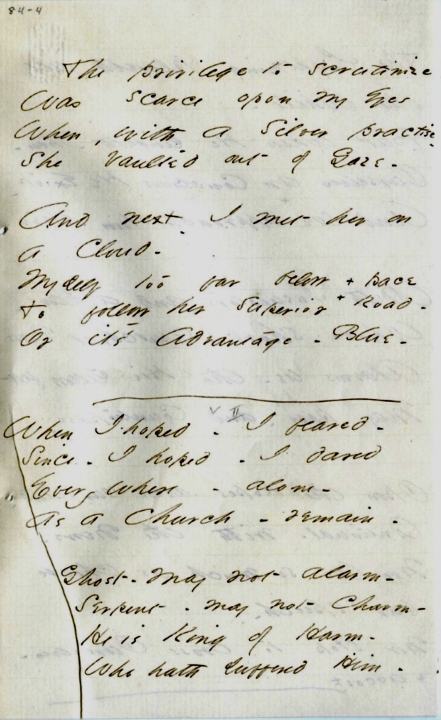 84-4
The privilege to scrutinize
Was scarce upon my Eyes
When, with a Silver practise
She vaulted out of Gaze -
And next I met her on
a Cloud -
Myself too far below + pace
To follow her Superior + Road -
Or it's Advantage - Blue -
When I hoped - I feared -
Since - I hoped - I dared
Everywhere - alone -
As a Church - remain -
Ghost - may not alarm -
Serpent - may not Charm -
He is King of Harm -
Who hath suffered Him -